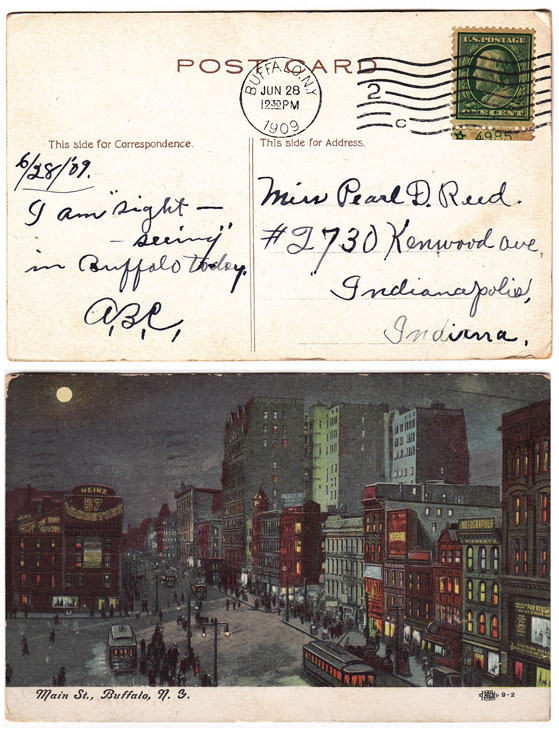 POST CARD
BUFFALO, N.Y.
JUN 28
12 30 PM
1909
2
C
U.S. POSTAGE
4985
This side for Correspondence.
This side for Address.
6/28/'09.
I am "sight-
-seeing"
in Buffalo today.
A,B,C,
Miss Pearl D. Reed.
#2730 Kenwood ave,
Indianapolis,
Indiana,
HEINZ
57
VARIETIES
PHOTOGRAPHER
Main St., Buffalo, N. Y.
9-2